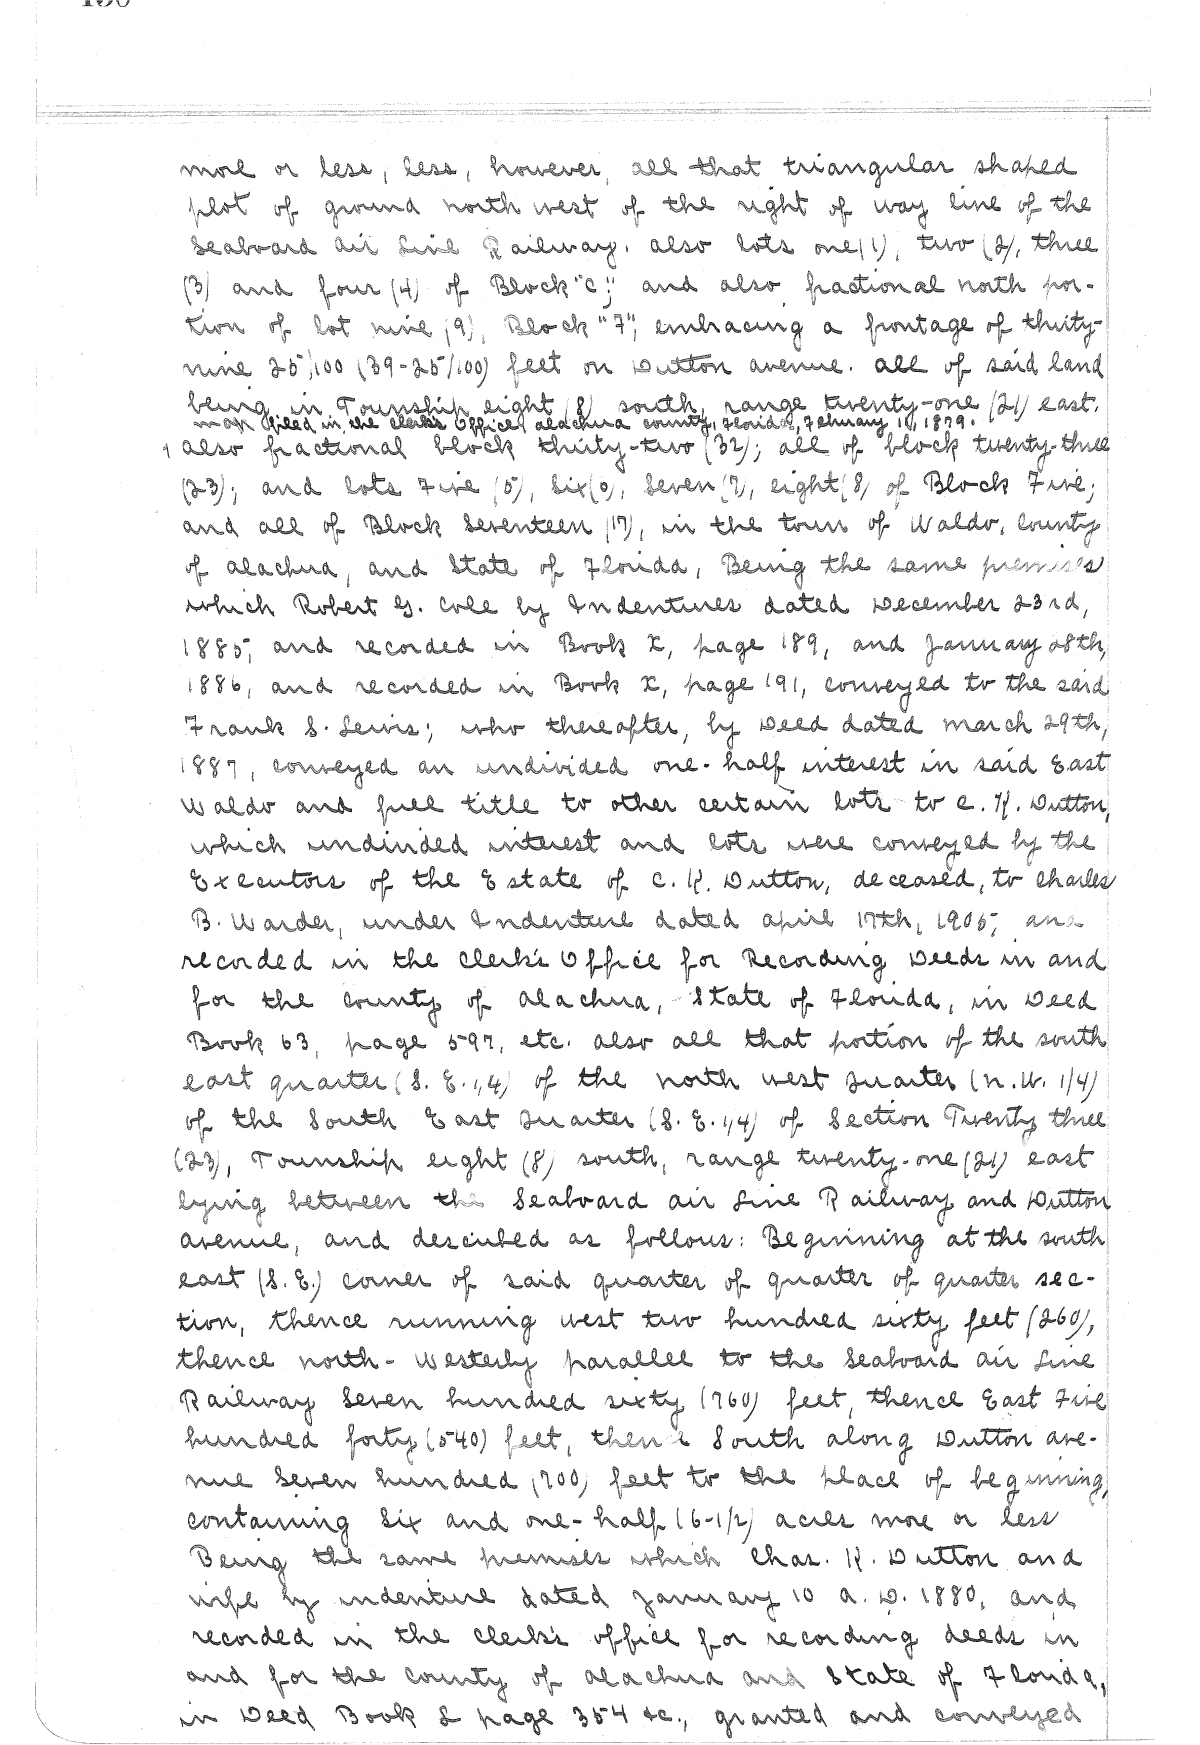 more or less, less, however, all that triangular shaped
plot of ground north west of the right of way line of the
Seaboard Air Line Railway. also lots one (1), two (2), three
(3) and four (4) of Block "C"; and also fractional north por-
tion of lot nine (9), Block "7", embracing a frontage of thirty-
nine 25/100 (39-25/100) feet on Dutton avenue. all of said land
being in Township eight (8) south, range twenty-one (21) east.
map filed in the Clerk's Office, Alachua County, Florida, February 10, 1879.
also fractional block thirty-two (32); all of block twenty-three
(23); and lots Five (5), Six (6), Seven (7), eight (8) of Block Five;
and all of Block Seventeen (17), in the town of Waldo, County
of Alachua, and State of Florida, Being the same premises
which Robert G. Cole by Indentures dated December 23rd,
1885, and recorded in Book X, page 189, and January 28th,
1886, and recorded in Book X, page 191, conveyed to the said
Frank S. Lewis; who thereafter, by Deed dated March 29th,
1887, conveyed an undivided one-half interest in said East
Waldo and full title to other certain lots to C. K. Dutton,
which undivided interest and lots were conveyed by the
Executors of the Estate of C. K. Dutton, deceased, to Charles
B. Warder, under Indenture dated April 17th, 1905, and
recorded in the Clerk's Office for Recording Deeds in and
for the County of Alachua, State of Florida, in Deed
Book 63, page 597, etc. also all that portion of the south
east quarter (S. E. 1/4) of the north west Quarter (N. W. 1/4)
of the South East Quarter (S. E. 1/4) of Section Twenty three
(23), Township eight (8) south, range twenty-one (21) east
lying between the Seaboard Air Line Railway and Dutton
avenue, and described as follows: Beginning at the south
east (S. E.) corner of said quarter of quarter of quarter sec-
tion, thence running west two hundred sixty feet (260),
thence north-Westerly parallel to the Seaboard Air Line
Railway Seven hundred sixty (760) feet, thence East Five
hundred forty (540) feet, thence South along Dutton ave-
nue Seven hundred (700) feet to the place of beginning,
containing Six and one-half (6-1/2) acres more or less
Being the same premises which Chas. K. Dutton and
wife by indenture dated January 10 A. D. 1880, and
recorded in the Clerk's office for recording deeds in
and for the County of Alachua and State of Florida,
in Deed Book L page 354 &c., granted and conveyed